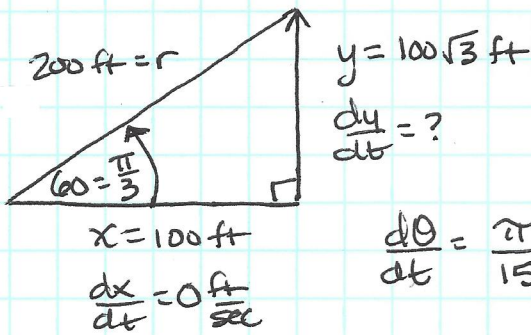 200 ft = r
y = 100√3 ft
dy/dt = ?
60 = π/3
x = 100 ft
dx/dt = 0 ft/sec
dθ/dt = π/15